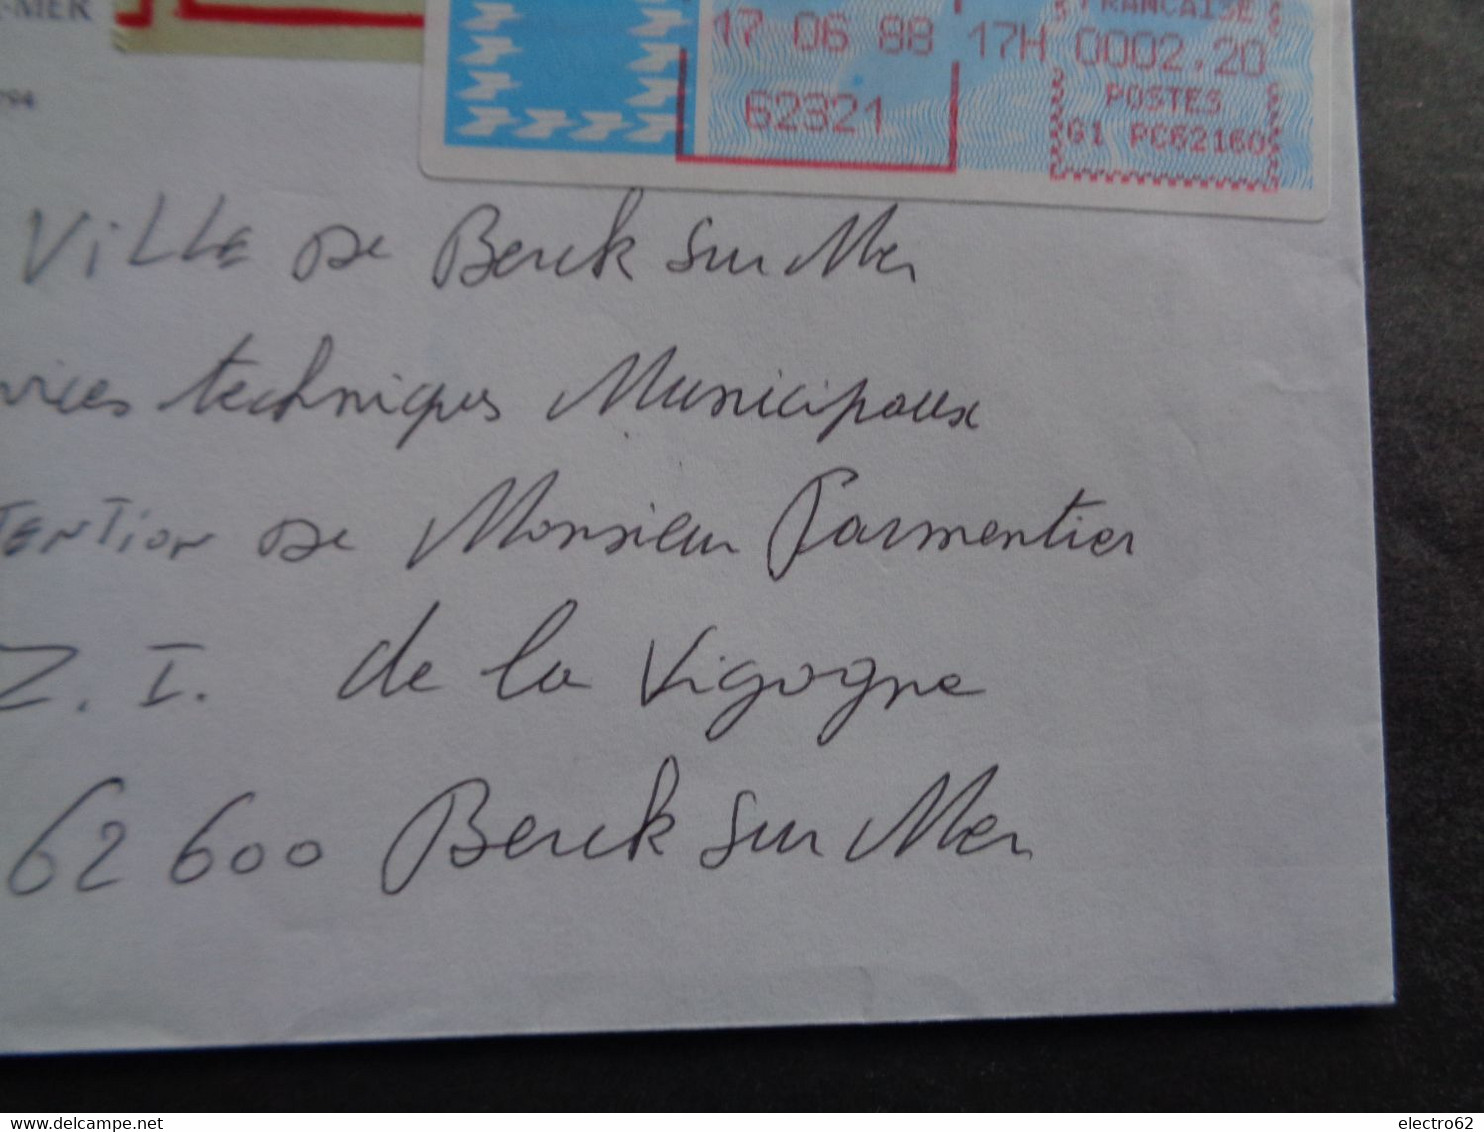 -MER
794
FRANCAISE
17 06 88 17H 0002.20
62321
POSTES
G1 PC62160
ViLLE De Berck Sur Mer
vices techniques Municipaux
TENTion De Monsieur Parmentier
Z.I. de la Vigogne
62600 Berck Sur Mer
electro62